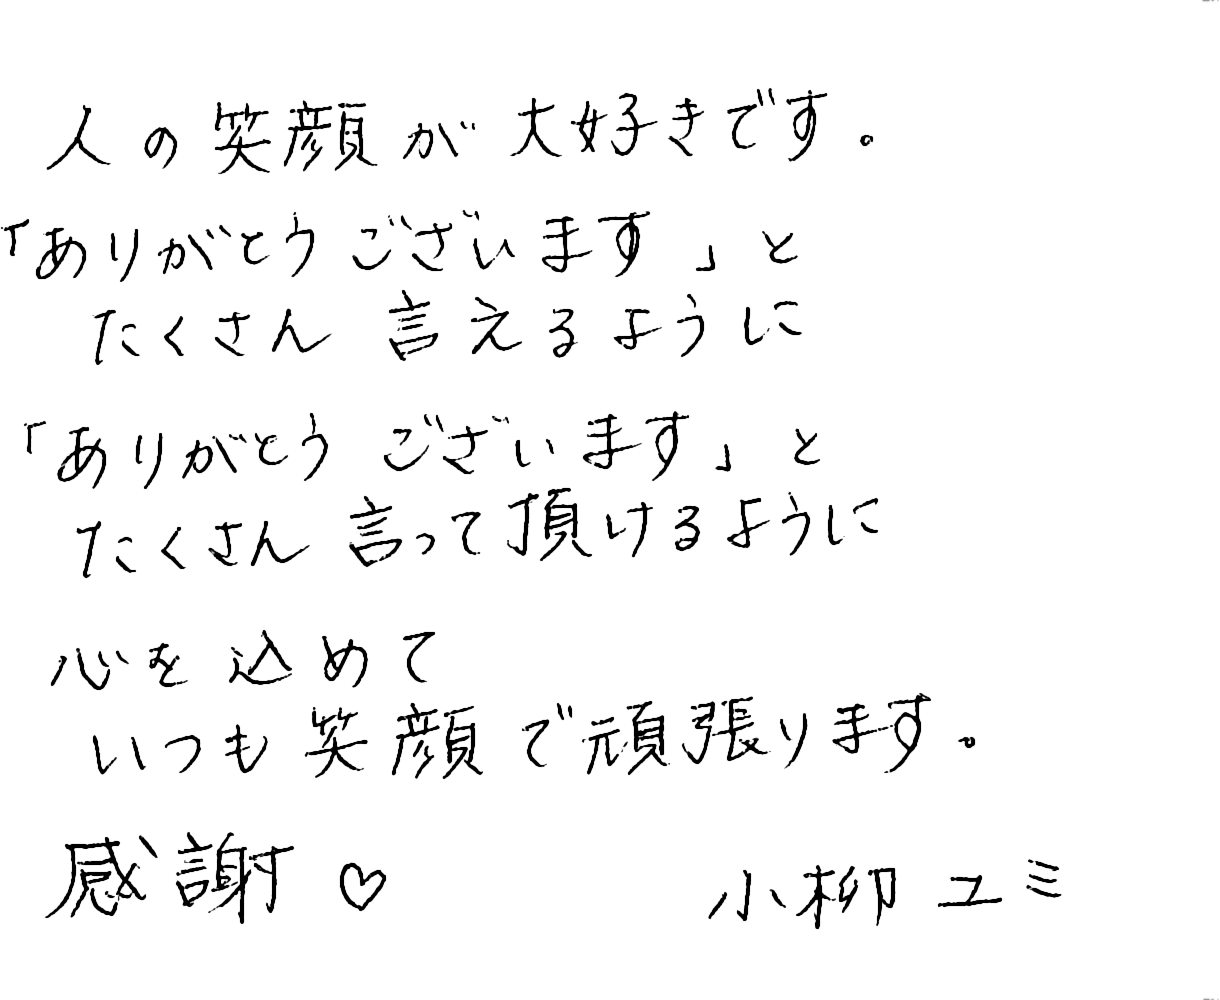 人の笑顔が大好きです。
「ありがとうございます」と
たくさん言えるように
「ありがとうございます」と
たくさん言って頂けるように
心を込めて
いつも笑顔で頑張ります。
感謝♡ 小柳ユミ